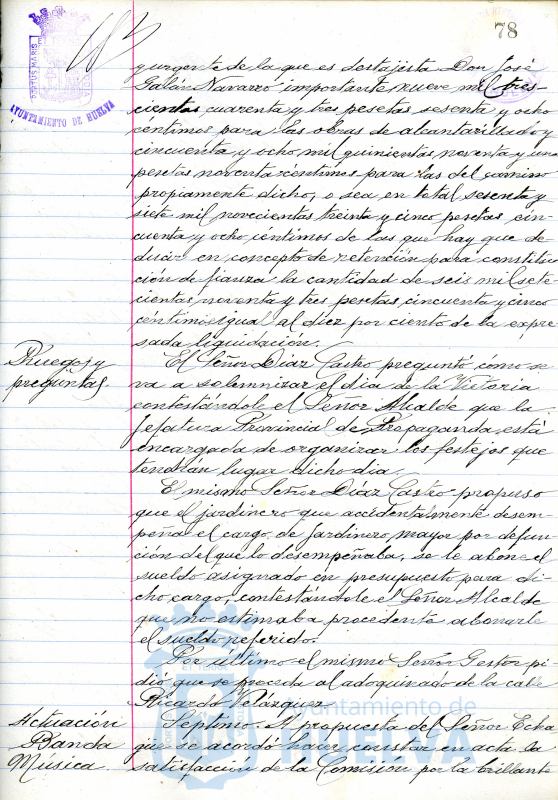 78
PORTUS MARIS
AYUNTAMIENTO DE HUELVA
y urgente de la que es destajista Don José
Galán Navarro importante nueve mil tres-
cientas cuarenta y tres pesetas sesenta y ocho
céntimos para las obras de alcantarillado y
cincuenta y ocho mil quinientas noventa y una
pesetas noventa céntimos para las del camino
propiamente dicho, o sea en total sesenta y
siete mil novecientas treinta y cinco pesetas cin-
cuenta y ocho céntimos de las que hay que de-
ducir en concepto de retención para constitu-
ción de fianza la cantidad de seis mil sete-
cientas noventa y tres pesetas cincuenta y cinco
céntimos igual al diez por ciento de la expre-
sada liquidación.
Ruegos y
preguntas
El Señor Díaz Castro preguntó cómo se
va a solemnizar el día de la Victoria
contestándole el Señor Alcalde que la
Jefatura Provincial de Propaganda está
encargada de organizar los festejos que
tendrán lugar dicho día.
El mismo Señor Díaz Castro propuso
que el jardinero que accidentalmente desem-
peña el cargo de Jardinero mayor por defun-
ción del que lo desempeñaba, se le abone el
sueldo asignado en presupuesto para di-
cho cargo, contestándole el Señor Alcalde
que no estimaba procedente abonarle
el sueldo referido.
Por último el mismo Señor Gestor pi-
dió que se proceda al adoquinado de la calle
Ricardo Velázquez.
Actuación
Banda
Música
Septimo. A propuesta del Señor
que se acordó hacer constar en acta la
satisfacción de la Comisión por la brillante
Ayuntamiento de
HUELVA